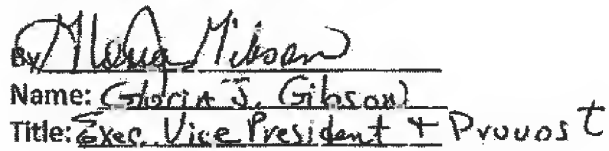 By Gloria Gibson
Name: Gloria J. Gibson
Title: Exec. Vice President + Provost